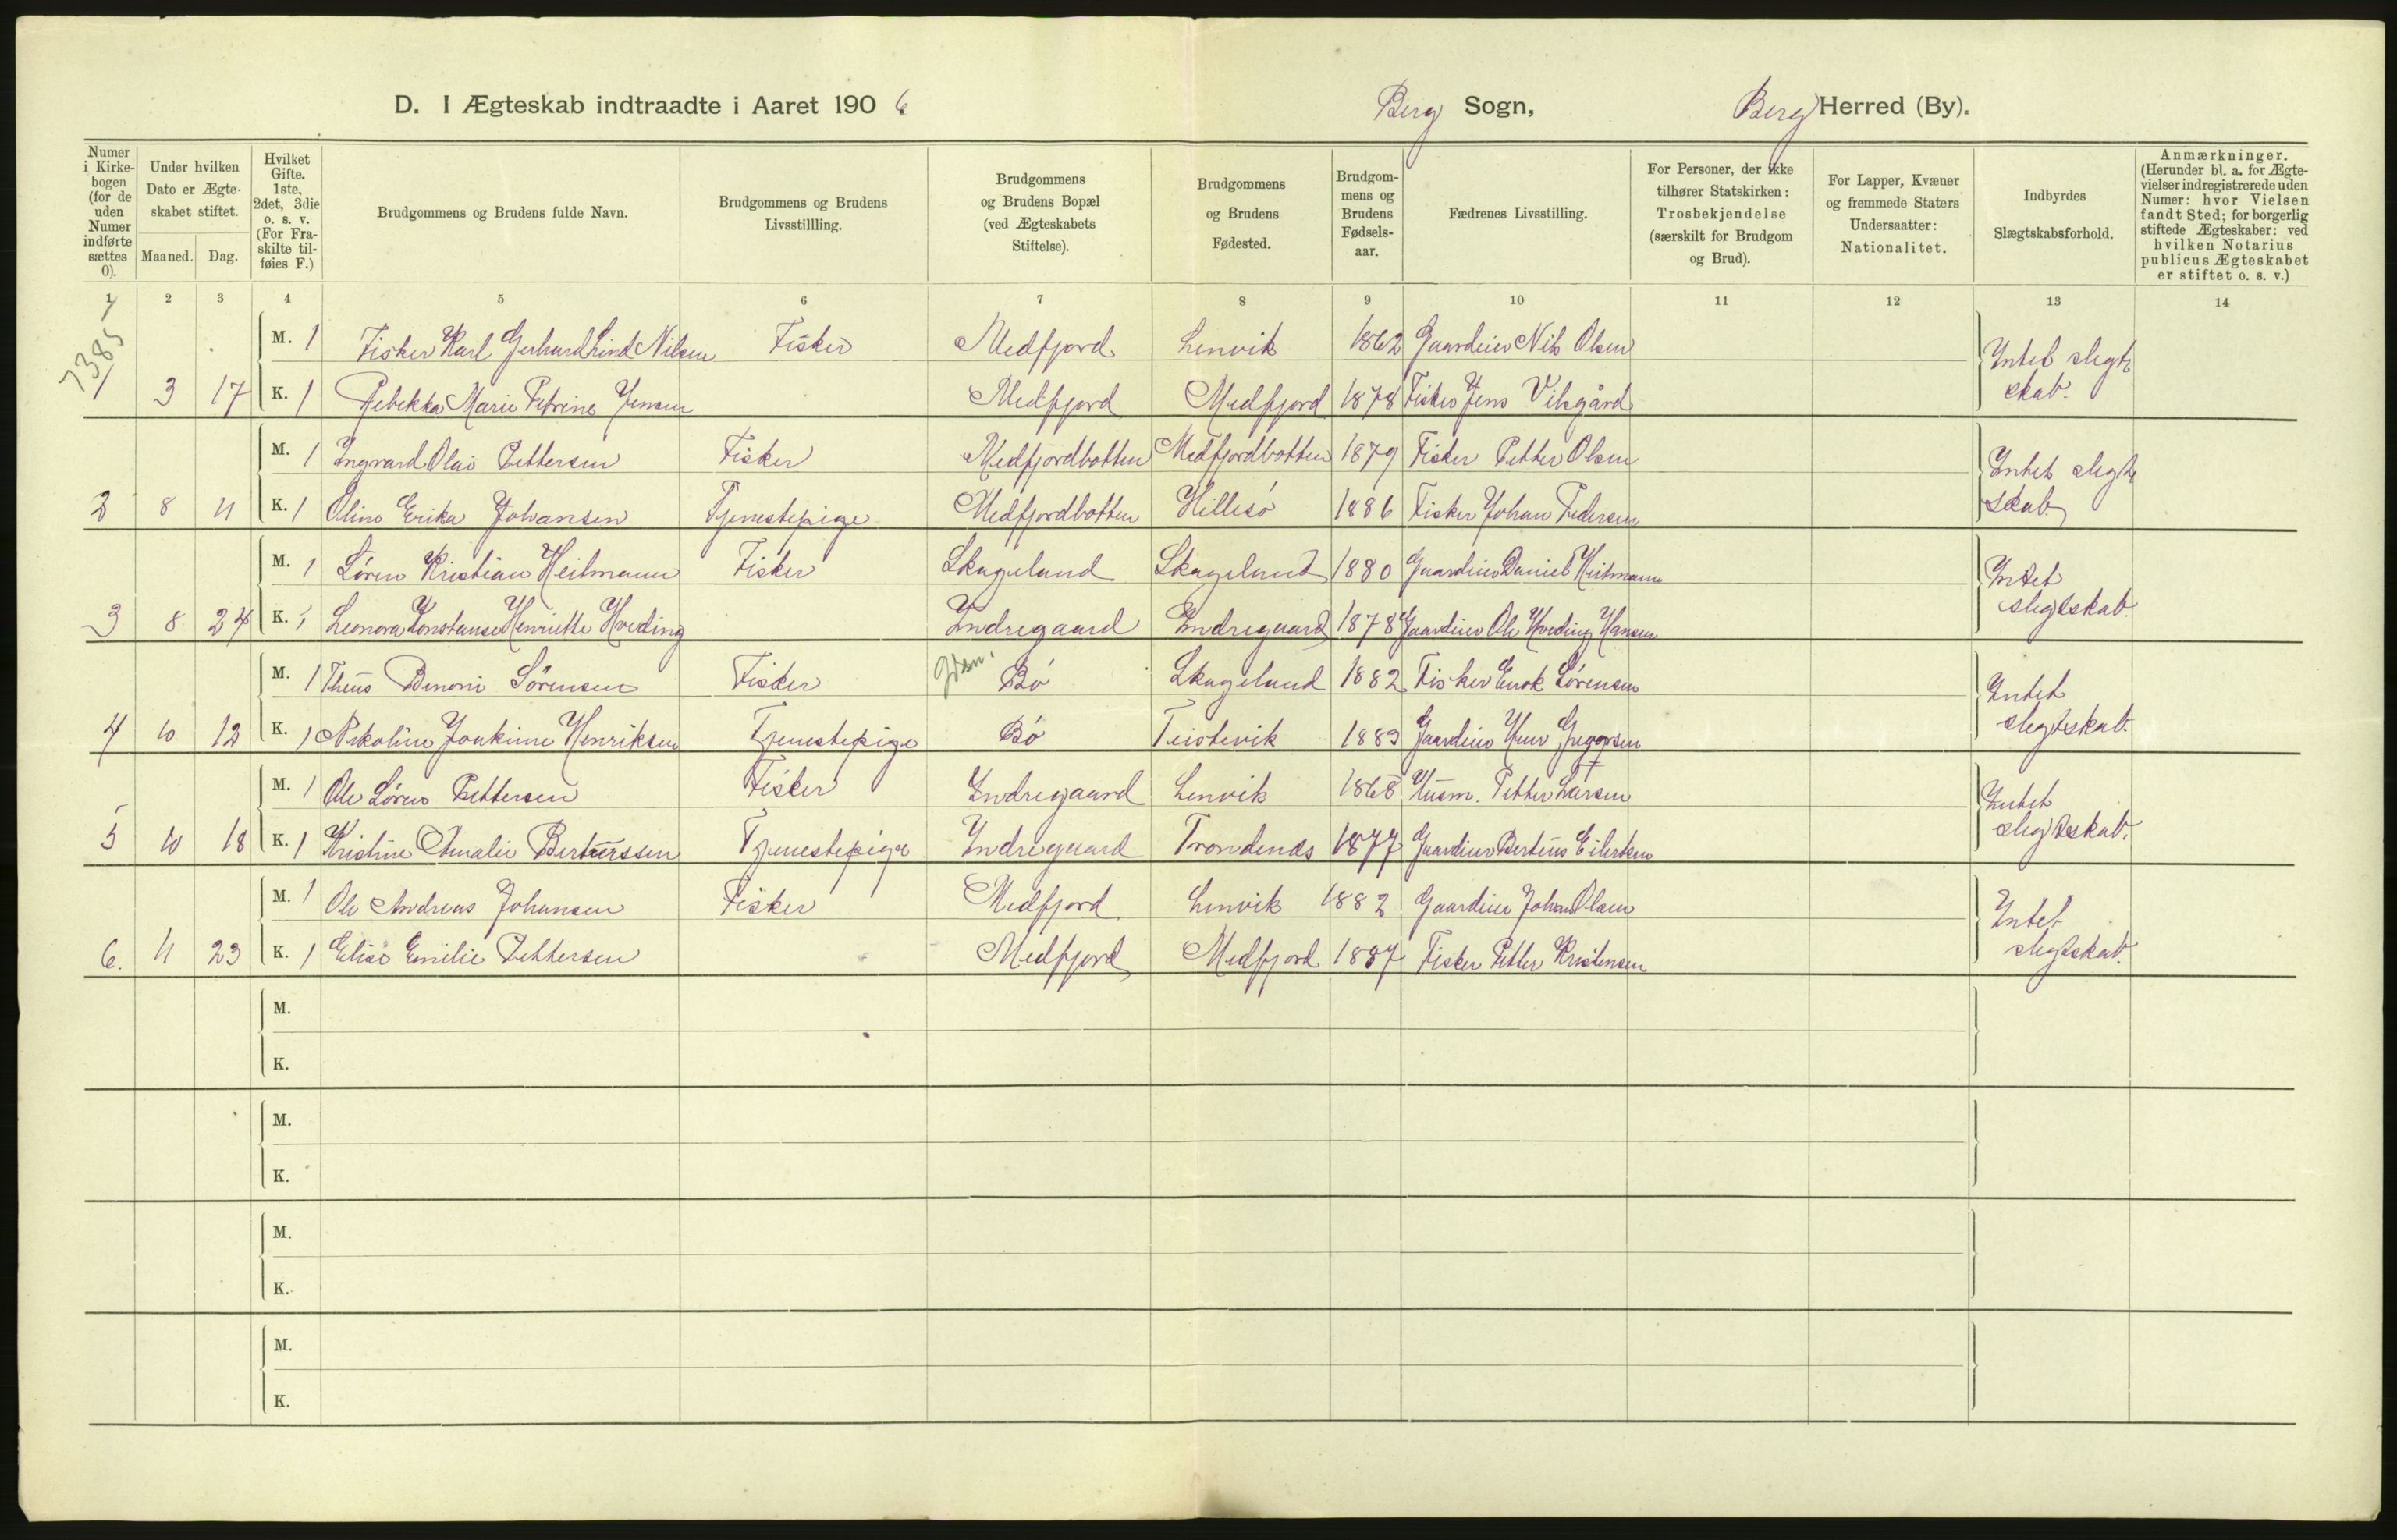 D. I Ægteskab indtraadte i Aaret 1906 Berg Sogn, Berg Herred (By).
Numer i Kirkebogen (for de uden Numer indførte sættes 0).
Under hvilken Dato er Ægteskabet stiftet.
Maaned. Dag.
Hvilket Gifte. 1ste, 2det, 3die o. s. v. (For Fraskilte tilføies F.)
Brudgommens og Brudens fulde Navn.
Brudgommens og Brudens Livsstillling.
Brudgommens og Brudens Bopæl (ved Ægteskabets Stiftelse).
Brudgommens og Brudens Fødested.
Brudgommens og Brudens Fødselsaar.
Fædrenes Livsstilling.
For Personer, der ikke tilhører Statskirken: Trosbekjendelse (særskilt for Brudgom og Brud).
For Lapper, Kvæner og fremmede Staters Undersaatter: Nationalitet.
Indbyrdes Slægtskabsforhold.
Anmærkninger. (Herunder bl. a. for Ægtevielser indregistrerede uden Numer: hvor Vielsen fandt Sted; for borgerlig stiftede Ægteskaber: ved hvilken Notarius publicus Ægteskabet er stiftet o. s. v.)
1 2 3 4 5 6 7 8 9 10 11 12 13 14
7385
M. 1 Fisker Karl Gerhard Lind Nilsen Fisker Medfjord Lenvik 1862 Gaardeier Nils Olsen Intet slegt
1 3 17 K. 1 Rebekka Marie Petrine Jensen Medfjord Medfjord 1878 Fisker Jens Vilsgård skab.
M. 1 Ingvard Olai Pettersen Fisker Medfjordbotten Medfjordbotten 1879 Fisker Petter Olsen Intet slegt
2 8 11 K. 1 Oline Erika Johansen Tjenestepige Medfjordbotten Hillesö 1886 Fisker Johan Pedersen skab.
M. 1 Sören Kristian Heitmann Fisker Skageland Skageland 1880 Gaardeier Daniel Heitmann Intet
3 8 24 K. 1 Leonora Konstanse Henriette Hveding Indregaard Indregaard 1878 Gaardeier Ole Hveding Hansen slegtskab.
M. 1 Theus Benoni Sörensen Fisker Bö Skageland 1882 Fisker Enok Sörensen Intet
4 10 12 K. 1 Nikoline Joakime Henriksen Tjenestepige Bö Teistevik 1883 Gaardeier Henr Gregersen slegtskab.
M. 1 Ole Sören Pettersen Fisker Indregaard Lenvik 1868 Husm. Petter Larsen Intet
5 10 18 K. 1 Kristine Amalie Berteussen Tjenestepige Indregaard Trondenes 1877 Gaardeier Berteus Eilertsen slegtskab.
M. 1 Ole Andreas Johansen Fisker Medfjord Lenvik 1882 Gaardeier Johan Olsen Intet
6. 11 23 K. 1 Elise Emilie Pettersen Medfjord Medfjord 1887 Fisker Petter Kristensen slegtskab.
M.
K.
M.
K.
M.
K.
M.
K.